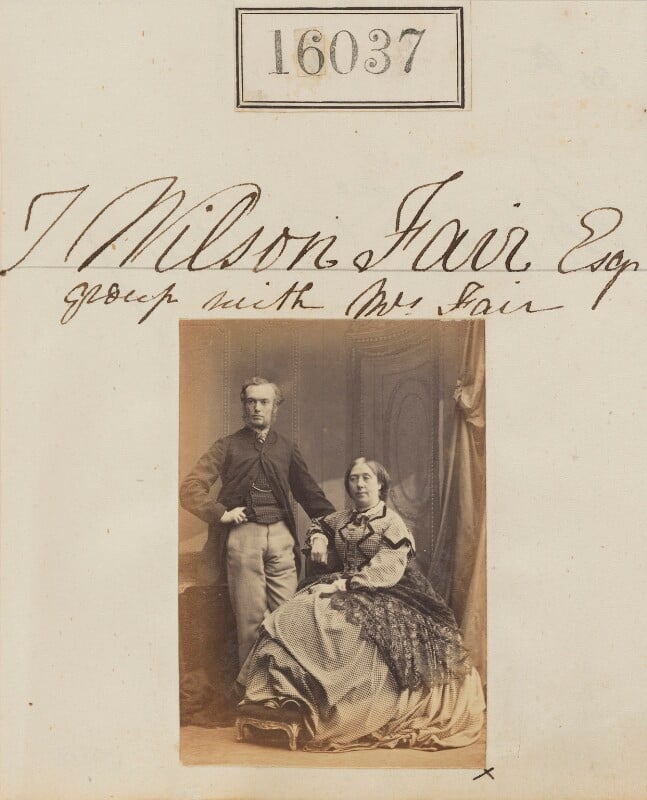 16037
T Wilson Fair Esqr
group with Mrs Fair
x